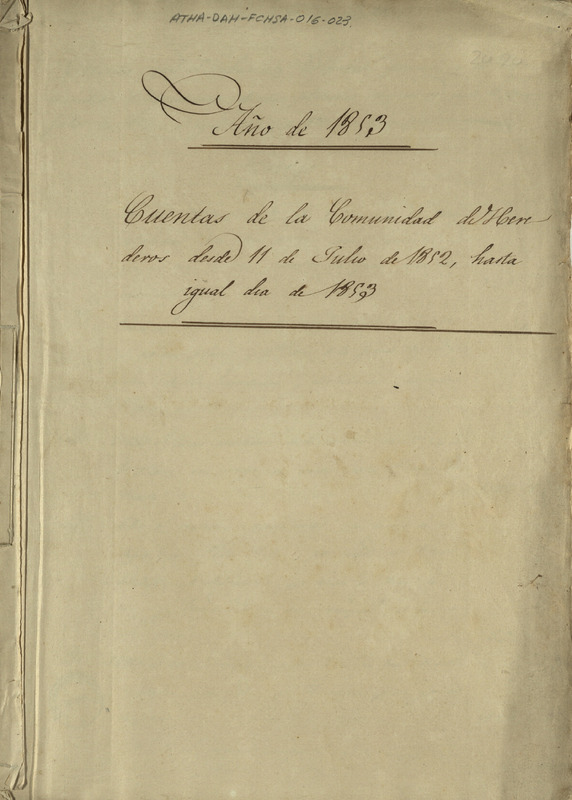 ATHA-DAH-FCHSA-016-023.
Año de 1853
Cuentas de la Comunidad de Here
deros desde 11 de Julio de 1852, hasta
igual dia de 1853